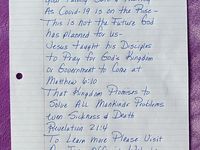 As Covid-19 is on the Rise -
This is not the Future God
has planned for us -
Jesus taught his Disciples
to Pray for God's Kingdom
or Government to Come at
Matthew 6:10
That Kingdom Promises to
Solve All Mankinds Problems
even Sickness & Death
Revelation 21:4
To Learn More Please Visit